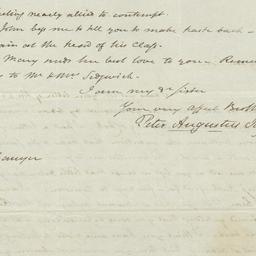 feeling nearly allied to contempt.
John begs me to tell you to make haste back
again at the head of his Class.
Mary sends her best love to you. Remem
to Mr & Mrs Sedgwick.
I am my dr sister
Your very affect Broth
Peter Augustus